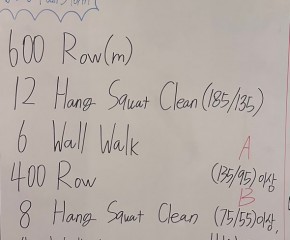 600 Row(m)
12 Hang Squat Clean (185/135)
6 Wall Walk
A
400 Row (135/95)이상
B
8 Hang Squat Clean (75/55)이상,